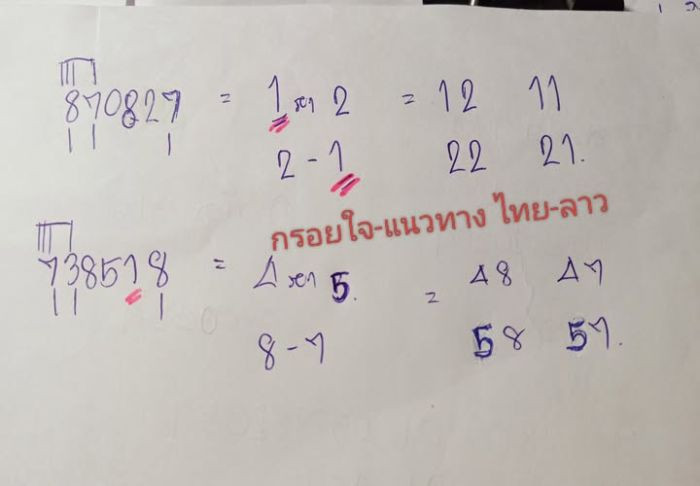 870827 = 1 หา 2 = 12 11
2 - 1 22 21.
กรอยใจ-แนวทาง ไทย-ลาว
738518 = 4 หา 5. = 48 47
8 - 7 58 57.